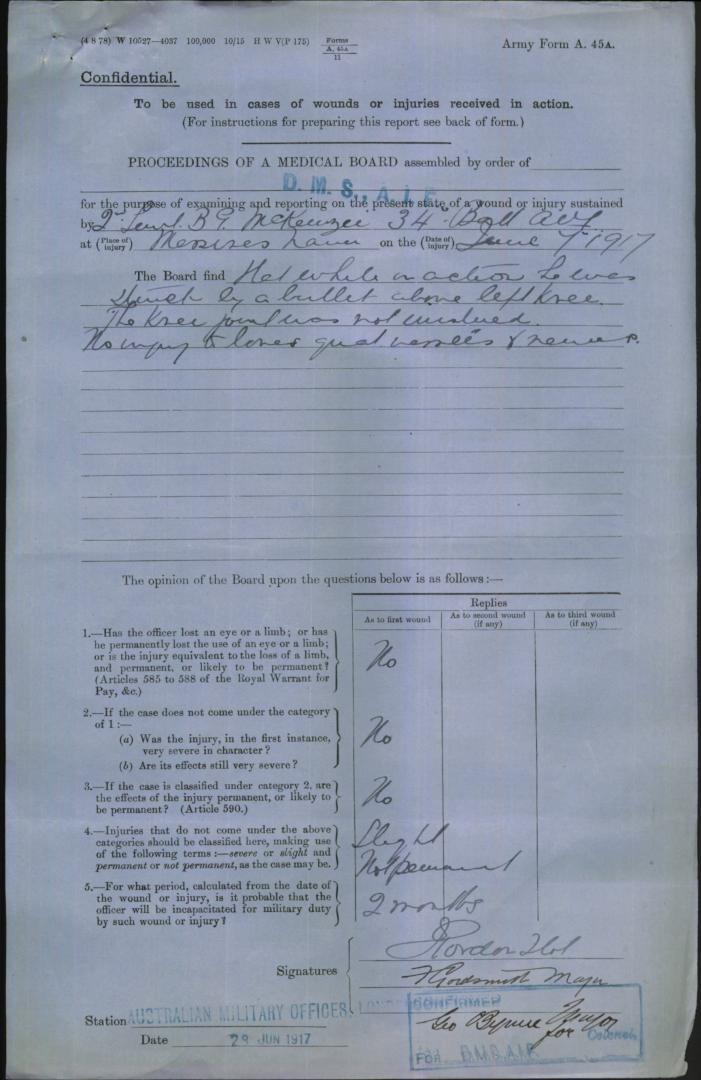 (4 8 78) W 10527—4037 100,000 10/15 H W V(P 175) Forms A. 45A 11
Army Form A. 45A.
Confidential.
To be used in cases of wounds or injuries received in action.
(For instructions for preparing this report see back of form.)
PROCEEDINGS OF A MEDICAL BOARD assembled by order of
D.M.S., A.I.F.
for the purpose of examining and reporting on the present state of a wound or injury sustained
by 2nd Lieut. B G McKenzie 34th Batt AIF
at (Place of injury) Messines on the (Date of injury) June 7th 1917
The Board find that while in action he was
struck by a bullet above left knee.
The knee joint was not involved.
No injury to bones great vessels & nerves.
The opinion of the Board upon the questions below is as follows:—
Replies
As to first wound
As to second wound (if any)
As to third wound (if any)
1.—Has the officer lost an eye or a limb; or has
he permanently lost the use of an eye or a limb;
or is the injury equivalent to the loss of a limb,
and permanent, or likely to be permanent?
(Articles 585 to 588 of the Royal Warrant for
Pay, &c.)
No
2.—If the case does not come under the category
of 1:—
(a) Was the injury, in the first instance,
very severe in character?
(b) Are its effects still very severe?
No
3.—If the case is classified under category 2, are
the effects of the injury permanent, or likely to
be permanent? (Article 590.)
No
4.—Injuries that do not come under the above
categories should be classified here, making use
of the following terms:—severe or slight and
permanent or not permanent, as the case may be.
Slight
Not permanent
5.—For what period, calculated from the date of
the wound or injury, is it probable that the
officer will be incapacitated for military duty
by such wound or injury?
2 months
Signatures
Gordon Col
Goldsmith Major
Station AUSTRALIAN MILITARY OFFICES, LONDON
CONFIRMED
Geo Byrne Major
for Colonel
Date 29 JUN 1917
FOR D.M.S. A.I.F.